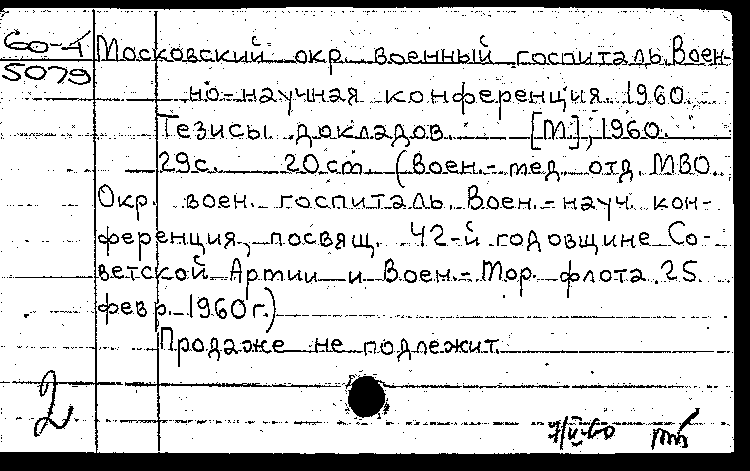 60-4 Московский окр. военный госпиталь. Воен-
5079 но-научная конференция. 1960.
Тезисы докладов. [М.], 1960.
29с. 20 ст. (Воен.-мед. отд. МВО.
Окр. воен. госпиталь. Воен.-науч. кон-
ференция, посвящ. 42-й годовщине Со-
ветской Армии и Воен.-Мор. флота. 25.
февр. 1960 г.)
Продаже не подлежит.
2